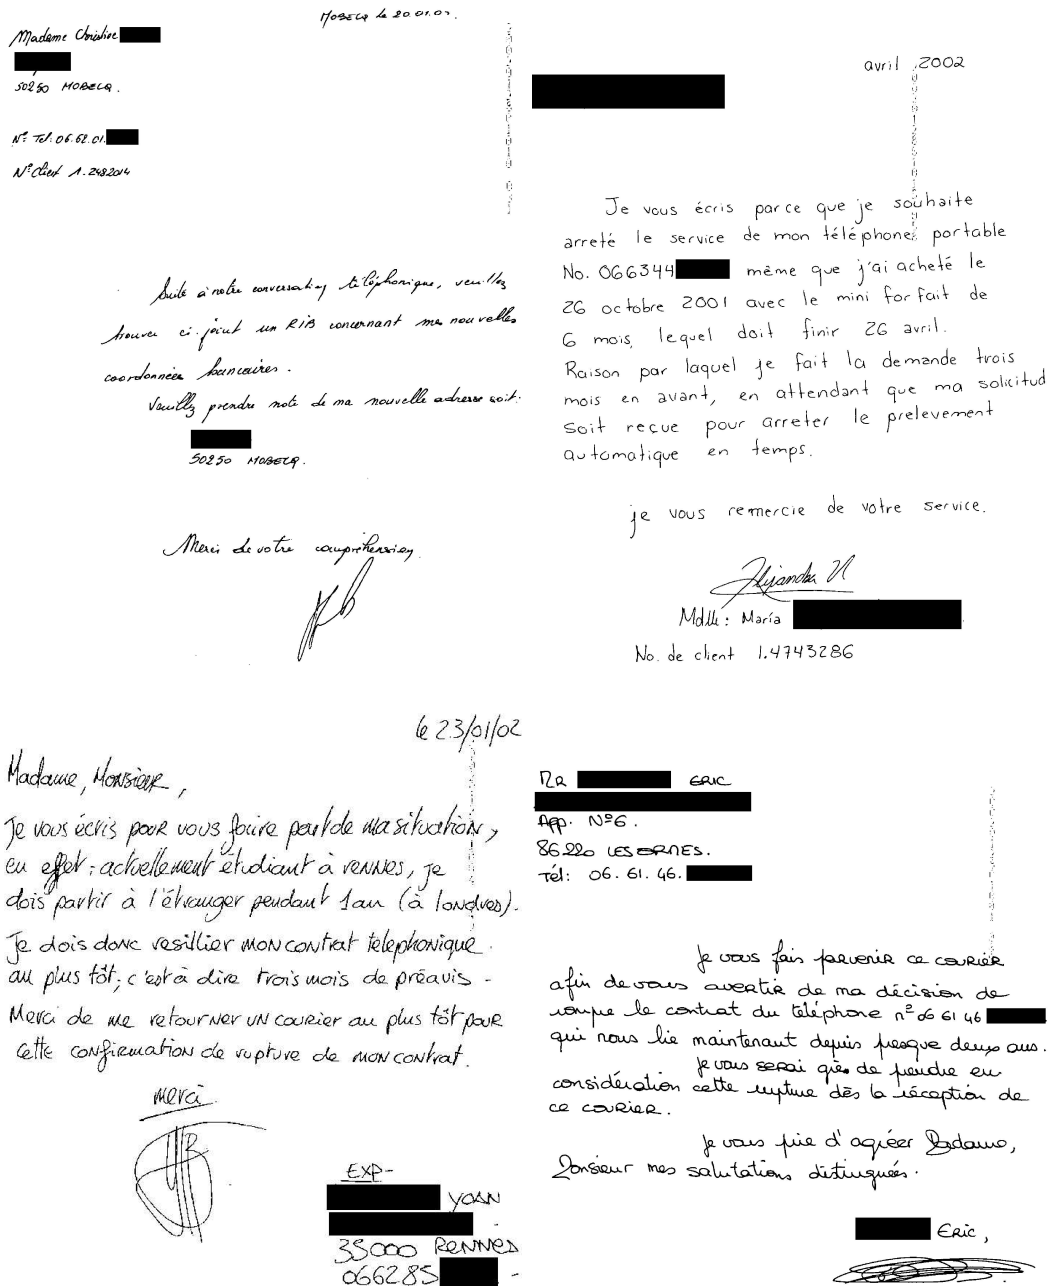 Mobecq le 20.01.02.
Madame Christine
50250 MOBECQ.
N° Tel: 06.62.01.
N° Client 1.2482014
Suite à notre conversation téléphonique, veuillez
trouver ci-joint un RIB concernant mes nouvelles
coordonnées bancaires.
Veuillez prendre note de ma nouvelle adresse soit:
50250 MOBECQ.
Merci de votre compréhension
avril 2002
Je vous écris parce que je souhaite
arreté le service de mon téléphone portable
No. 066344 même que j'ai acheté le
26 octobre 2001 avec le mini forfait de
6 mois, lequel doit finir 26 avril.
Raison par laquel je fait la demande trois
mois en avant, en attendant que ma solicitud
soit reçue pour arreter le prelevement
automatique en temps.
je vous remercie de votre service.
Alejandra
Mdlle: María
No. de client 1.4743286
le 23/01/02
Madame, Monsieur,
Je vous écris pour vous faire part de ma situation,
en effet; actuellement étudiant à rennes, je
dois partir à l'étranger pendant 1an (à londres).
Je dois donc resillier mon contrat telephonique
au plus tôt; c'est à dire trois mois de préavis -
Merci de me retourner un courier au plus tôt pour
cette confirmation de rupture de mon contrat.
merci
EXP-
YOAN
35000 RENNES
066285 -
MR ERIC
App. N°6.
86220 LES ORMES.
Tél: 06. 61. 46.
Je vous fais parvenir ce courier
afin de vous avertir de ma décision de
rompre le contrat du téléphone n° 06 61 46
qui nous lie maintenant depuis presque deux ans.
Je vous serai grès de prendre en
considération cette rupture dès la réception de
ce courier.
Je vous prie d'agréer Madame,
Monsieur mes salutations distinguées.
Eric,